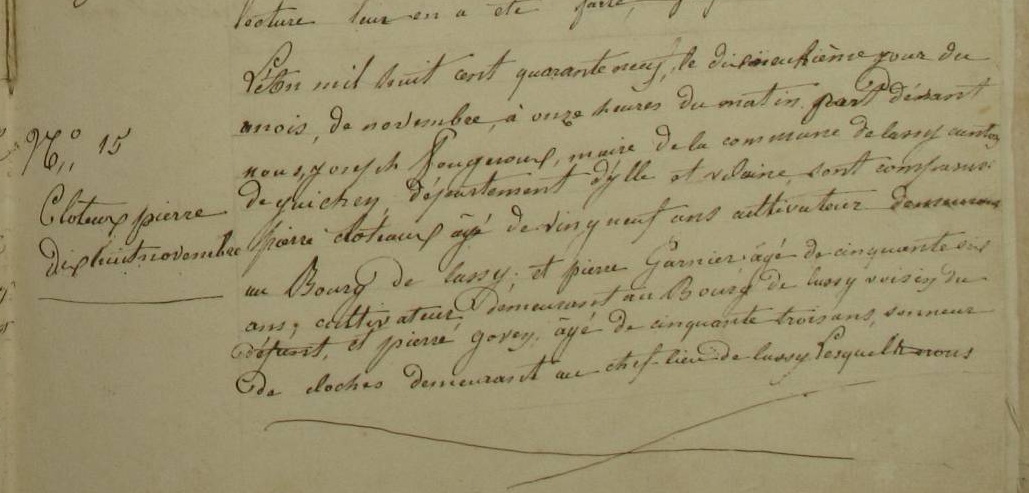 lecture leur en a été faite,
L'an mil huit cent quarante neuf, le dixneuxième jour du
mois, de novembre, à onze heures du matin, part dévant
nous, joseph Fougeroux, maire de la commune de lassy canton
de guichen, département d'ylle et vilaine, sont comparus
pierre cloteaux âgé de vingneuf ans cultivateur demeurans
au Bourg de lassy; et pierre Garnier âgé de cinquante six
ans, cultivateur demeurant au Bourg de lassy voisin du
défunt, et pierre govey, âgé de cinquante trois ans, sonneur
de cloches demeurant au chef-lieu de lassy Lesquels nous
N° 15
Cloteux pierre
dix huit novembre